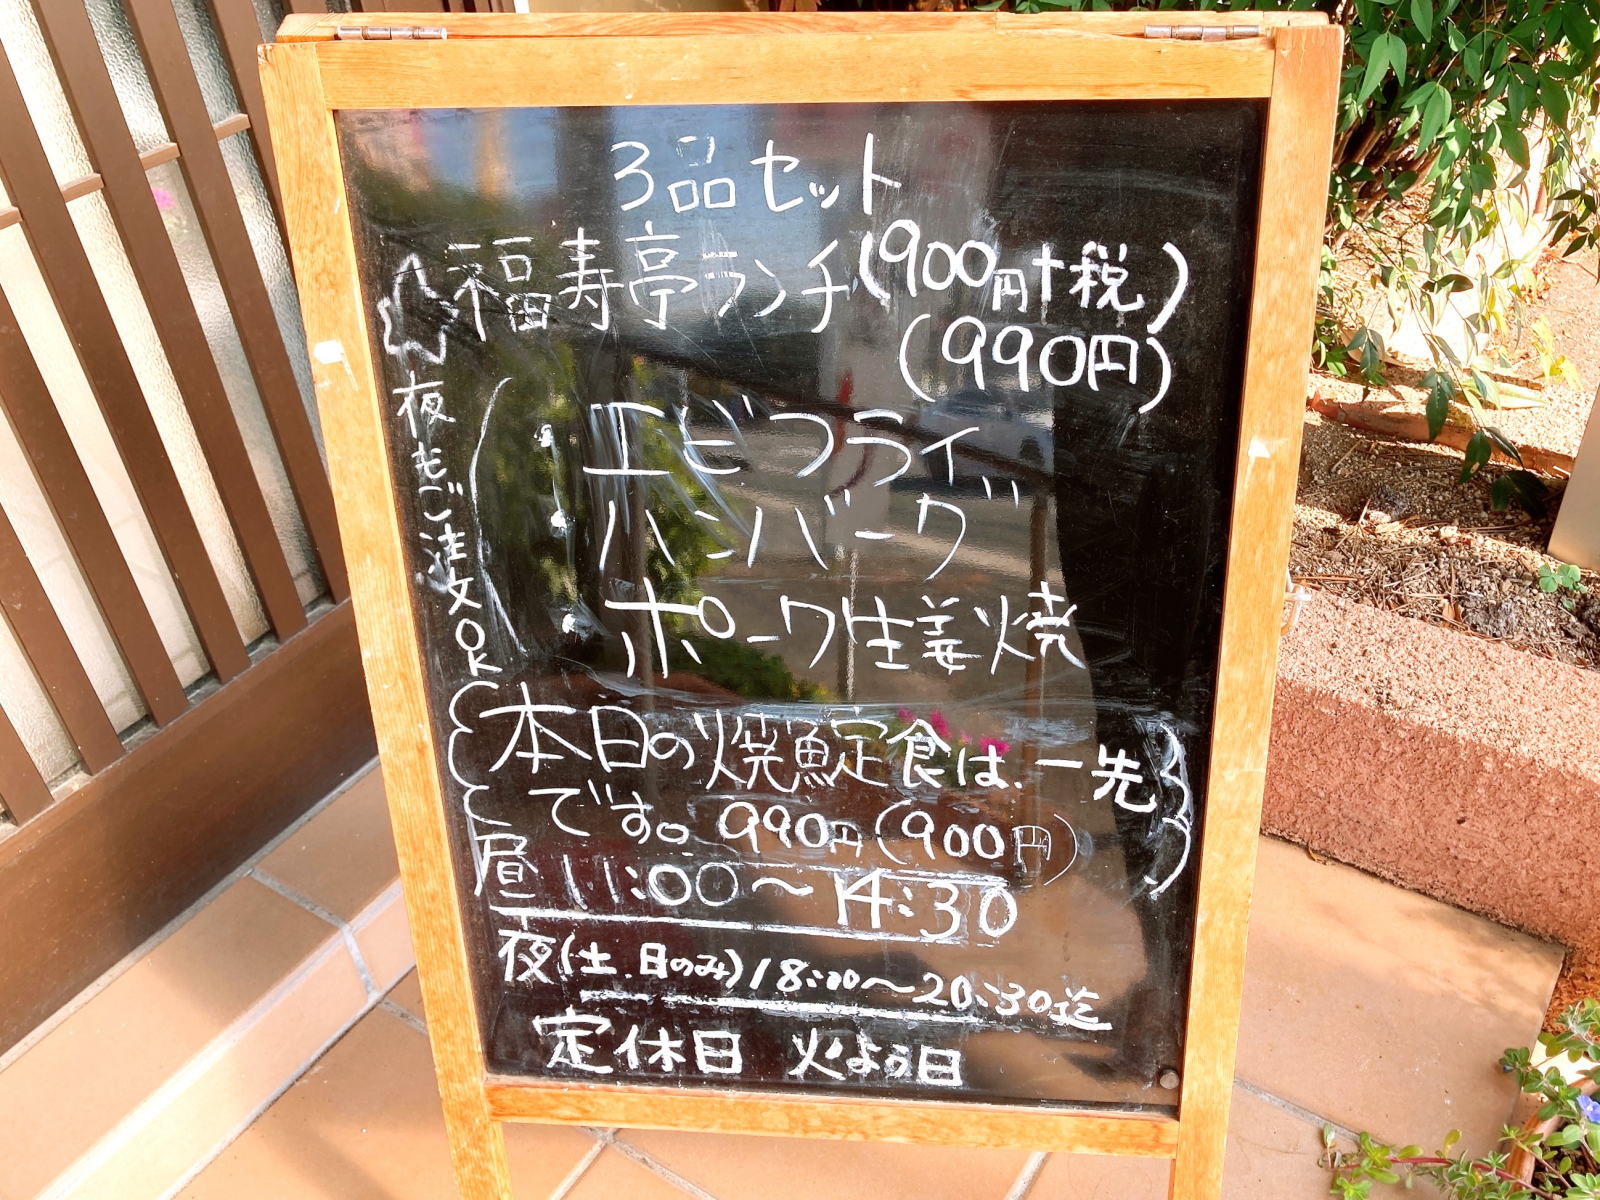 3品セット
福寿亭ランチ(900円+税)
(990円)
夜もご注文OK
・エビフライ
・ハンバーグ
・ポーク生姜焼
本日の焼魚定食は、一先
です。990円(900円)
昼 11:00〜14:30
夜(土.日のみ)18:00〜20:30迄
定休日 火よう日